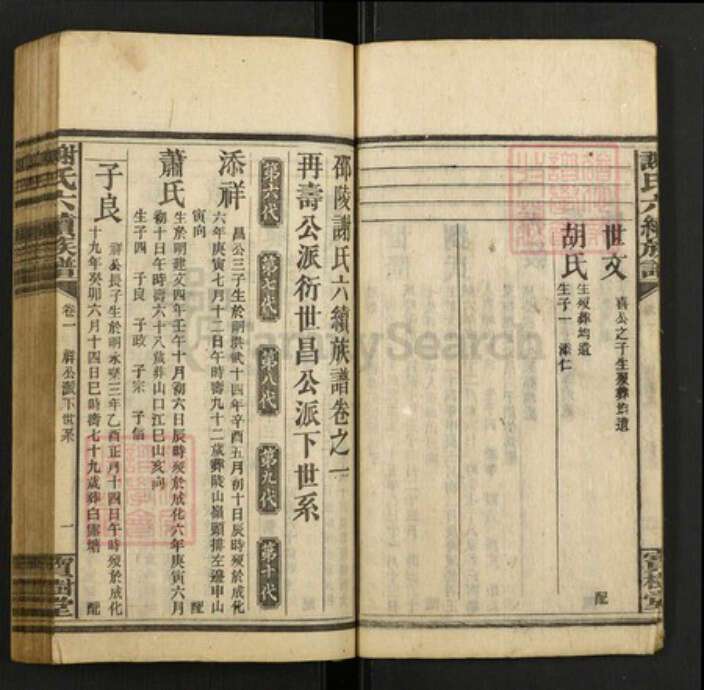 謝氏六續族譜
世文
喜公之子生歿葬均遺
配
胡氏
生歿葬均遺
生子一 添仁
寶樹堂
邵陵謝氏六續族譜卷之一
再壽公派衍世昌公派下世系
第六代 第七代 第八代 第九代 第十代
添祥
昌公三子生於明洪武十四年辛酉五月初十日辰時歿於成化
六年庚寅七月十二日午時壽九十二歲葬陵山嶺頭排左邊申山
寅向
配
蕭氏
生於明建文四年壬午十月初六日辰時歿於成化六年庚寅六月
初十日午時壽六十八歲葬山口江巳山亥向
生子四 子良 子政 子宗
子良
祥公長子生於明永樂三年乙酉正月十四日午時歿於成化
十九年癸卯六月十四日巳時壽七十九歲葬白露塘
配
謝氏六續族譜
卷一
派下世系
一
寶樹堂
FamilySearch